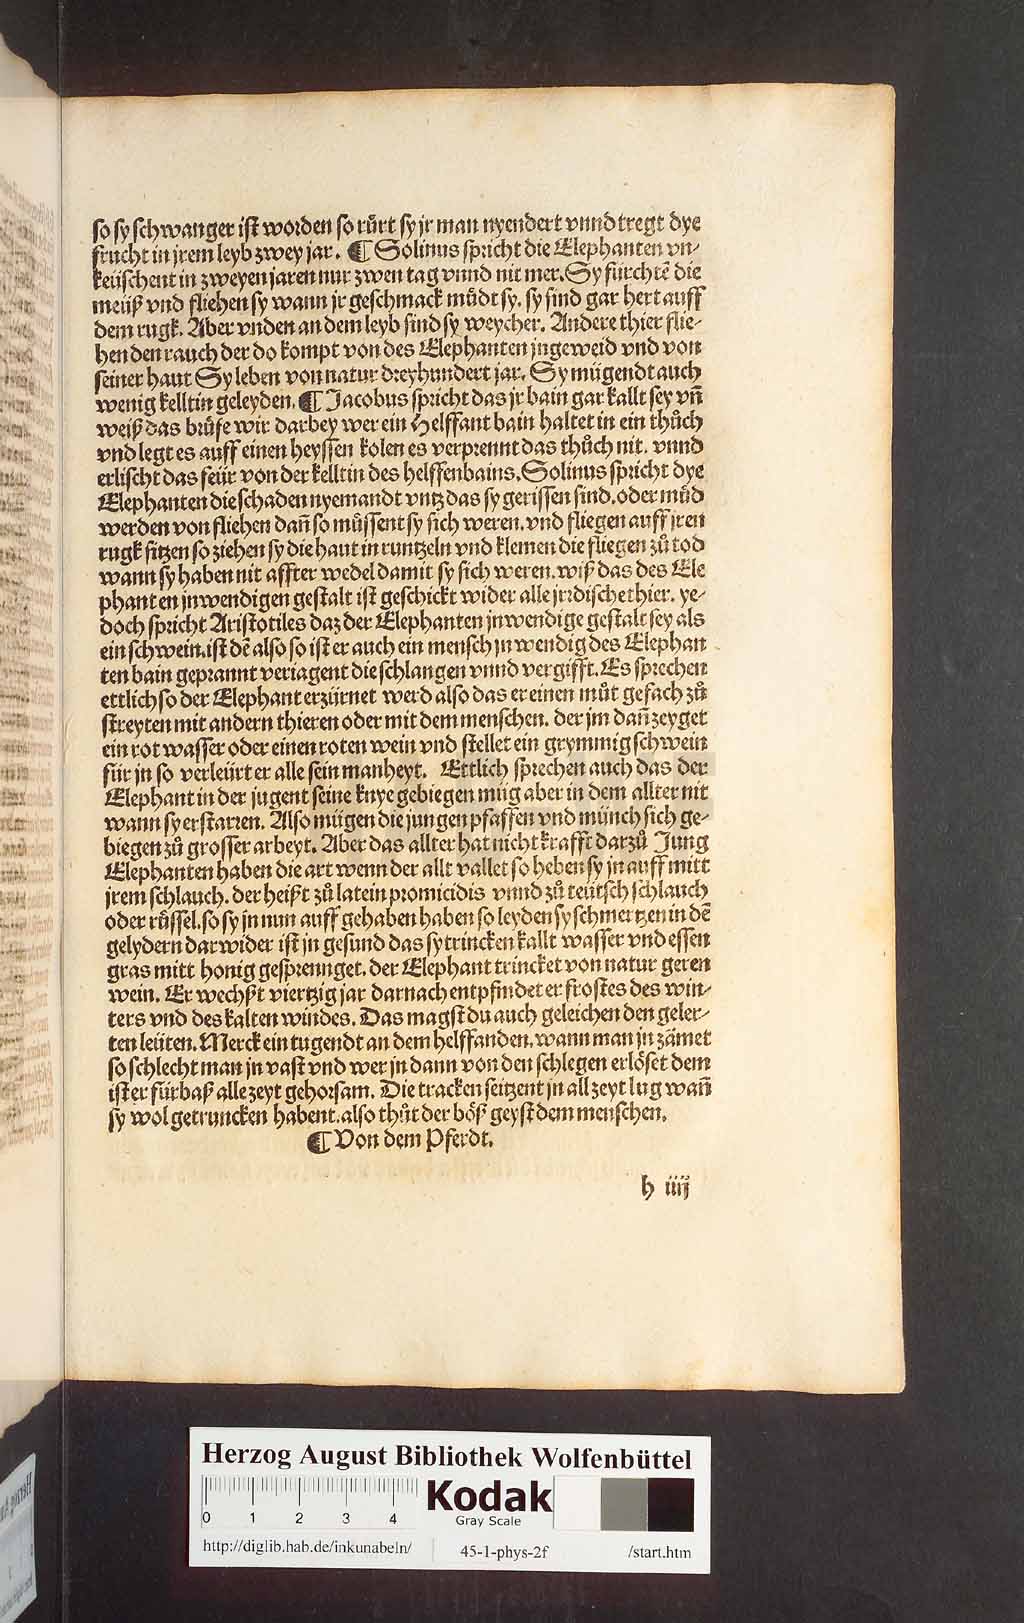 so sy schwanger ist worden so růrt sy jr man nyendert vnnd tregt dye
frucht in jrem leyb zwey jar. ¶ Solinus spricht die Elephanten vn-
keüschent in zweyen jaren nur zwen tag vnnd nit mer. Sy fürchtē die
meüß vnd fliehen sy wann jr geschmack můdt sy. sy sind gar hert auff
dem rugk. Aber vnden an dem leyb sind sy weycher. Andere thier flie-
hen den rauch der do kompt von des Elephanten jngeweid vnd von
seiner haut Sy leben von natur dreyhundert jar. Sy mügendt auch
wenig kelltin geleyden. ¶ Jacobus spricht das jr bain gar kallt sey vn̄
weiß das brůfe wir darbey wer ein Helffant bain haltet in ein thůch
vnd legt es auff einen heyssen kolen es verprennt das thůch nit. vnnd
erlischt das feür von der kelltin des helffenbains. Solinus spricht dye
Elephanten die schaden nyemandt vntz das sy gerissen sind. oder můd
werden von fliehen dan̄ so můssent sy sich weren. vnd fliegen auff jren
rugk sitzen so ziehen sy die haut in runtzeln vnd klemen die fliegen zů tod
wann sy haben nit affter wedel damit sy sich weren. wiß das des Ele
phanten jnwendigen gestalt ist geschickt wider alle jrrdische thier. ye-
doch spricht Aristotiles daz der Elephanten jnwendige gestalt sey als
ein schwein. ist dē also so ist er auch ein mensch jnwendig des Elephan
ten bain geprannt veriagent die schlangen vnnd vergifft. Es sprechen
ettlich so der Elephant erzürnet werd also das er einen můt gefach zů
streyten mit andern thieren oder mit dem menschen. der jm dan̄ zeyget
ein rot wasser oder einen roten wein vnd stellet ein grymmig schwein
für jn so verleürt er alle sein manheyt. Ettlich sprechen auch das der
Elephant in der jugent seine knye gebiegen müg aber in dem allter nit
wann sy erstarren. Also mügen die jungen pfaffen vnd münch sich ge-
biegen zů grosser arbeyt. Aber das allter hat nicht krafft darzů Jung
Elephanten haben die art wenn der allt vallet so heben sy jn auff mitt
jrem schlauch. der heißt zů latein promicidis vnnd zů teütsch schlauch
oder růssel. so sy jn nun auff gehaben haben so leyden sy schmertzen in dē
gelydern darwider ist jn gesund das sy trincken kallt wasser vnd essen
gras mitt honig gesprennget. der Elephant trincket von natur geren
wein. Er wechßt viertzig jar darnach entpfindet er frostes des win-
ters vnd des kalten windes. Das magst du auch geleichen den geler-
ten leüten. Merck ein tugendt an dem helffanden. wann man jn zämet
so schlecht man jn vast vnd wer jn dann von den schlegen erlöset dem
ist er fürbaß alle zeyt gehorsam. Die tracken seitzent jn all zeyt lug wan̄
sy wol getruncken habent. also thůt der böß geyst dem menschen.
¶ Von dem Pferdt.
h iiij
Herzog August Bibliothek Wolfenbüttel
0 1 2 3 4
Kodak
Gray Scale
http://diglib.hab.de/inkunabeln/ 45-1-phys-2f /start.htm